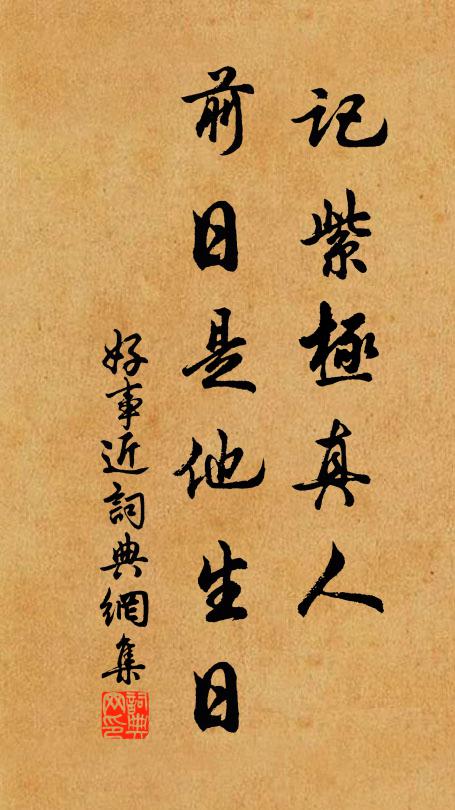 記紫極真人
前日是他生日
好事近詞典網集
詞典網印